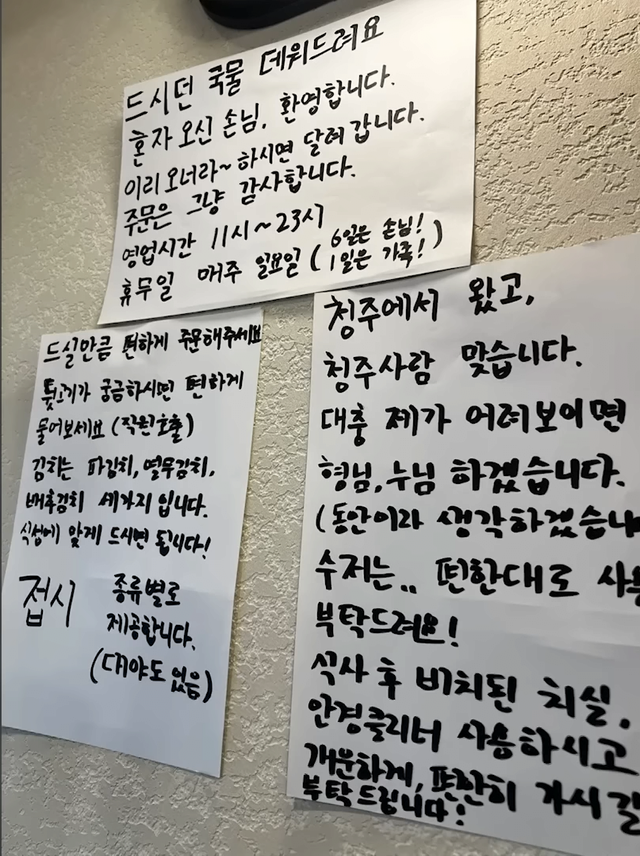 드시던 국물 데워드려요
혼자 오신 손님, 환영합니다.
이리 오너라~ 하시면 달려 갑니다.
주문은 그냥 감사합니다.
영업시간 11시~23시
휴무일 매주 일요일 (6일은 손님! 1일은 가족!)
드실만큼 편하게 주문해주세요
뒷고기가 궁금하시면 편하게
물어보세요 (직원호출)
김치는 파김치, 열무김치,
배추김치 세가지 입니다.
식성에 맞게 드시면 됩니다!
접시 종류별로
제공합니다.
(대야도 있음)
청주에서 왔고,
청주사람 맞습니다.
대충 제가 어려보이면
형님, 누님 하겠습니다.
(동안이라 생각하겠습니
수저는.. 편한대로 사용
부탁드려요!
식사 후 비치된 치실,
안경클리너 사용하시고
개운하게, 편안히 가시길
부탁드립니다!